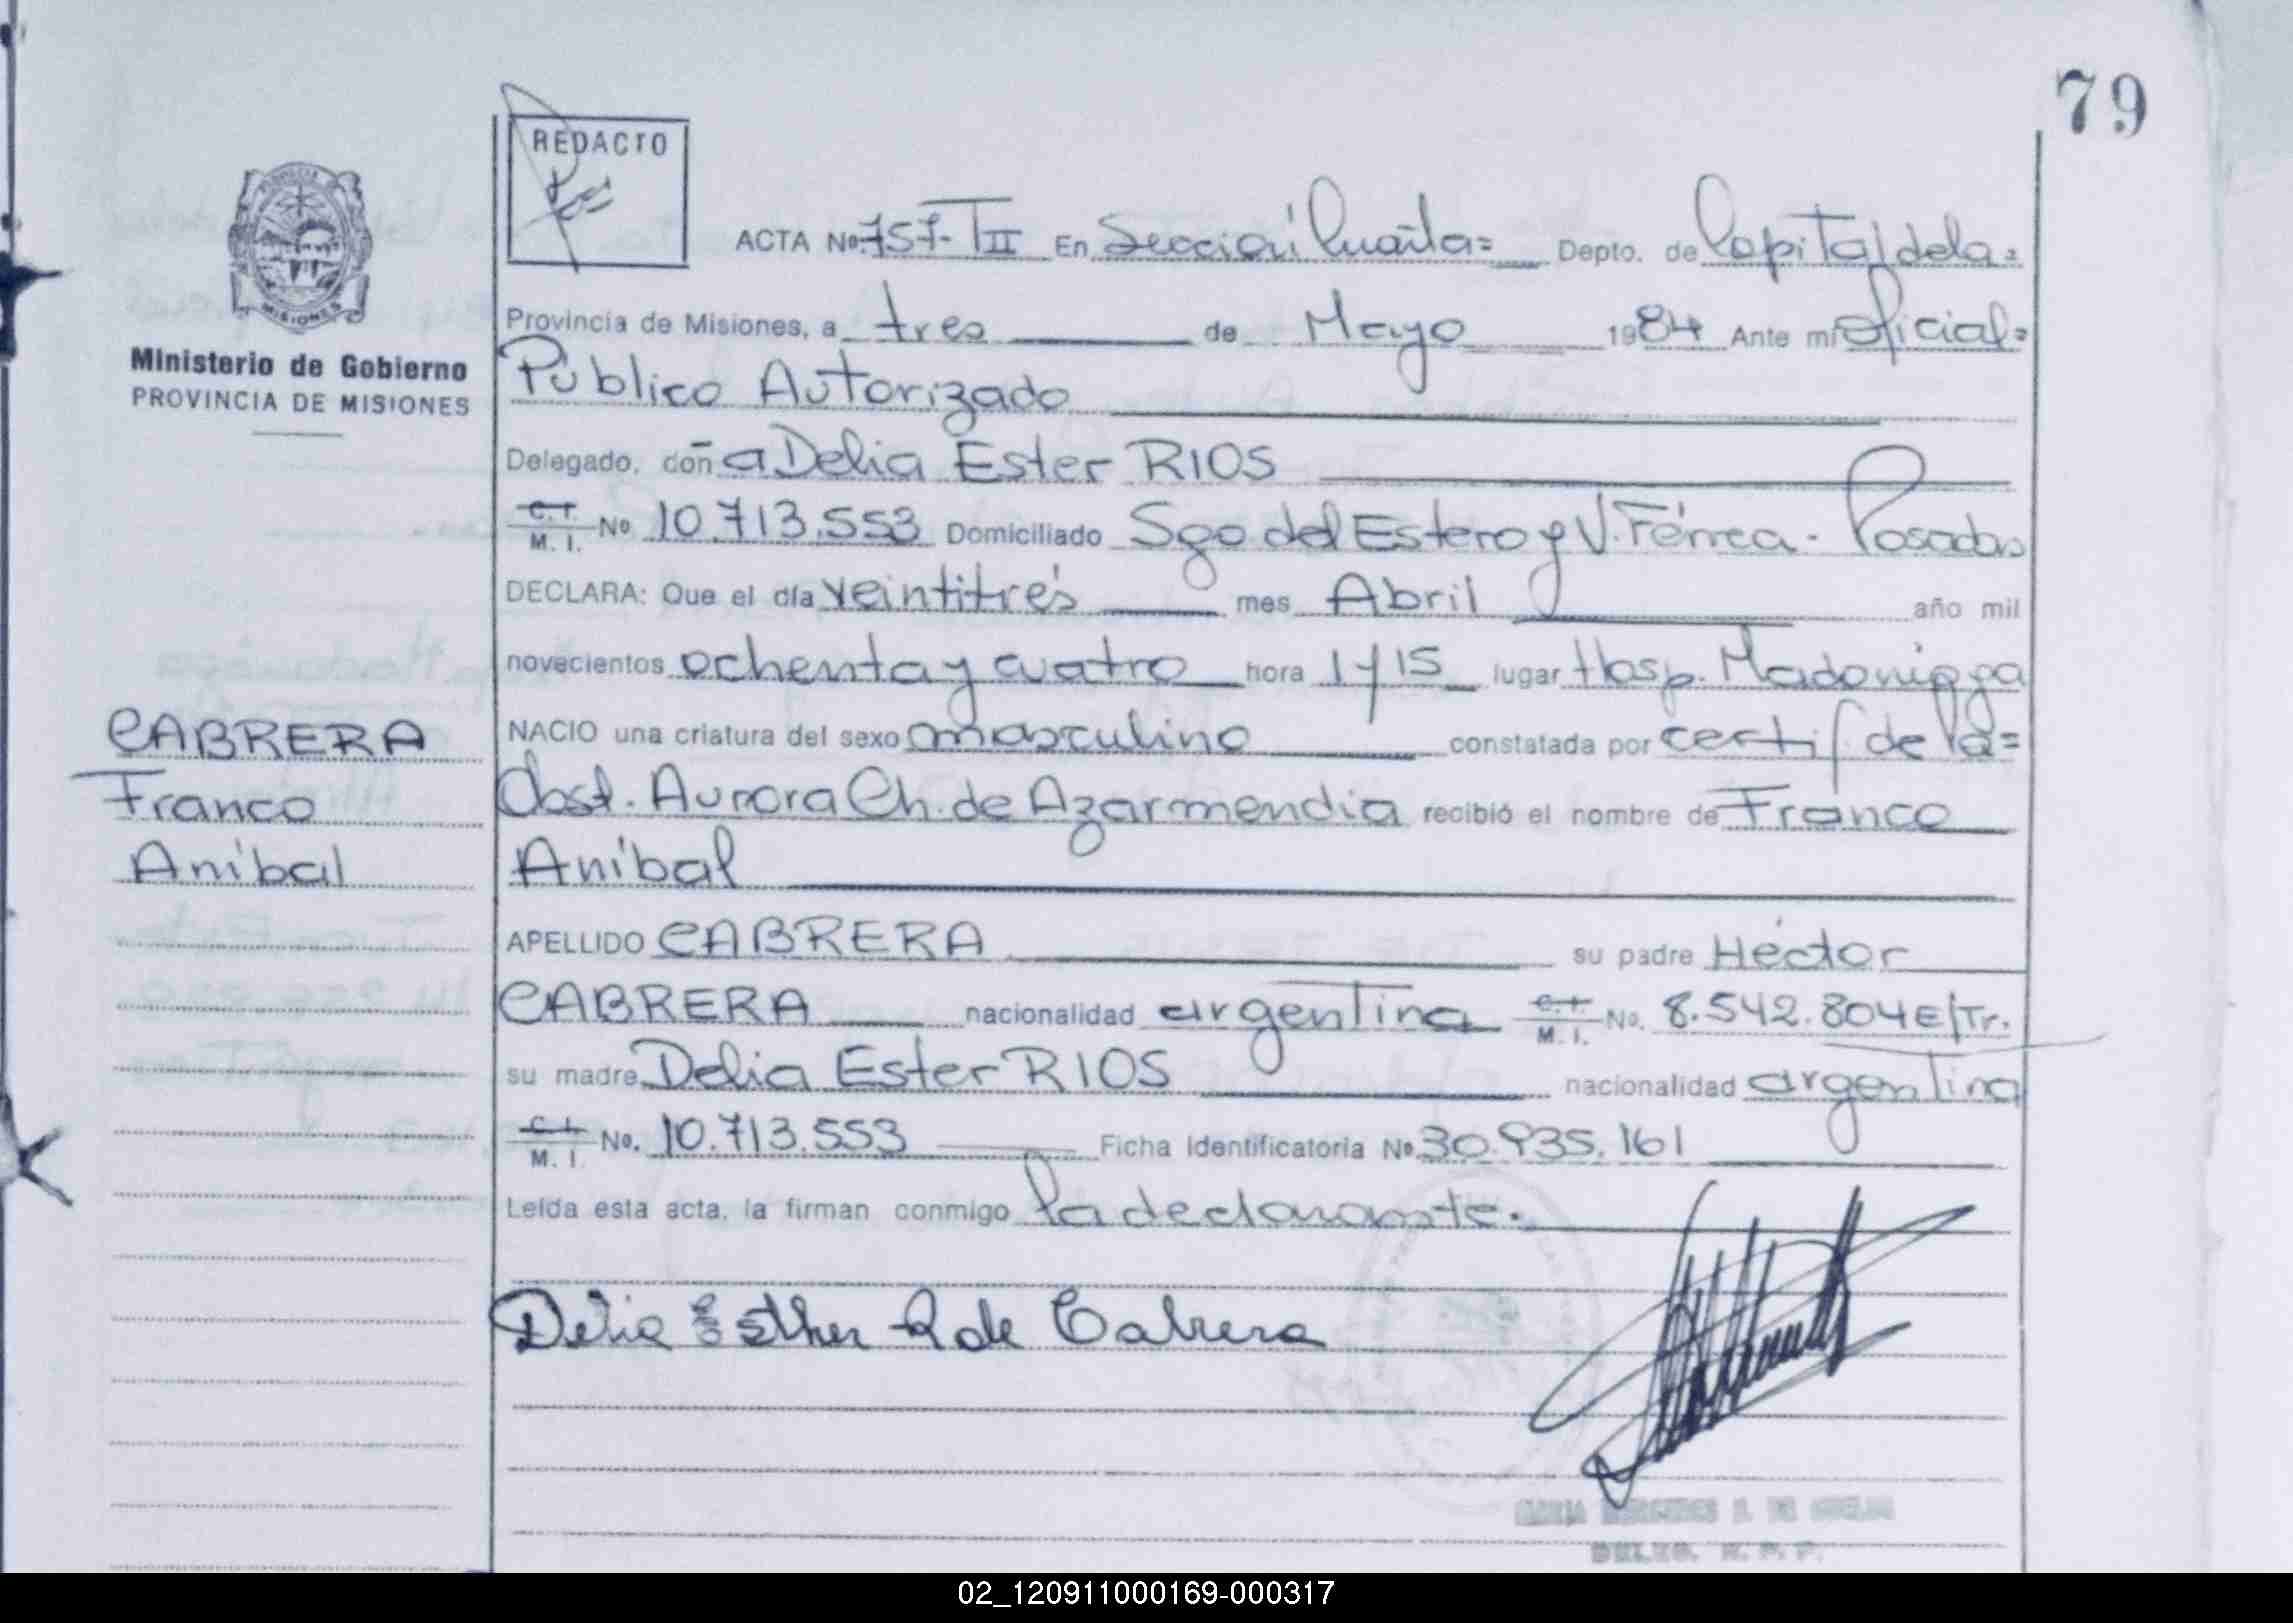 79
REDACTO
ACTA No. 757-TII En Sección Cuarta= Depto. de Capital de la=
Provincia de Misiones, a tres de Mayo 1984 Ante mi Oficial=
Público Autorizado
Ministerio de Gobierno
PROVINCIA DE MISIONES
MISIONES
Delegado, doña Delia Ester RIOS
C.I. M.I. No 10.713.553 Domiciliado Sgo del Estero y V. Férrea. Posadas
DECLARA: Que el día veintitrés mes Abril año mil
novecientos ochenta y cuatro hora 1 y 15 lugar Hosp. Madariaga
CABRERA
Franco
Aníbal
NACIO una criatura del sexo masculino constatada por certif. de la=
Obst. Aurora Ch. de Azarmendia recibió el nombre de Franco
Aníbal
APELLIDO CABRERA su padre Héctor
CABRERA nacionalidad argentina C.I. M.I. No. 8.542.804 E/Tr.
su madre Delia Ester RIOS nacionalidad argentina
C.I. M.I. No. 10.713.553 Ficha Identificatoria No 30.935.161
Leída esta acta, la firman conmigo la declarante.
Delia Esther R de Cabrera
MARIA MERCEDES
02_120911000169-000317